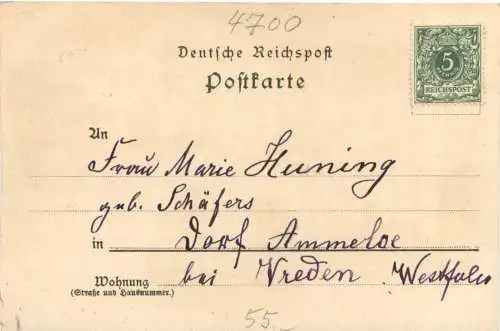 4700
Deutsche Reichspost
Postkarte
5
REICHSPOST
An
Frau Marie Huning
geb. Schäfers
in Dorf Ammeloe
Wohnung bei Vreden. Westfalen
(Straße und Hausnummer.)
55.-